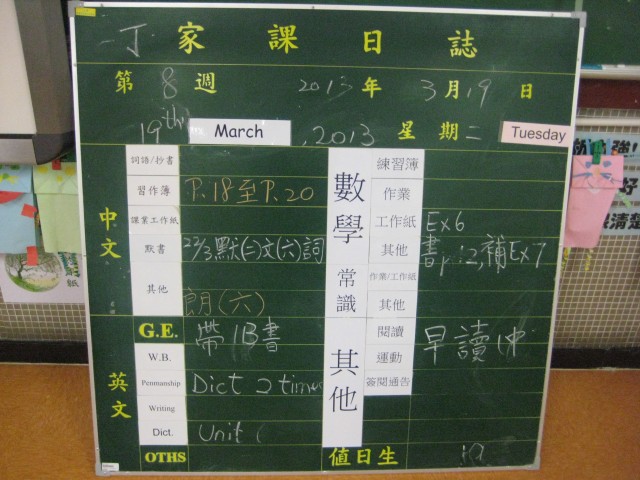 一丁 家課日誌
第 8 週 2013 年 3 月 19 日
19th March , 2013 星期 二 Tuesday
中文
詞語/抄書
習作簿 P.18至P.20
課業工作紙
默書 22/3默(二)文(六)詞
其他 朗(六)
英文
G.E. 帶1B書
W.B.
Penmanship Dict 2 times
Writing
Dict. Unit
OTHS
數學
練習簿
作業
工作紙 Ex6
其他 書p.12,補Ex7
常識
作業/工作紙
其他
其他
閱讀 早讀
運動
簽閱通告
值日生
強!
好
清楚